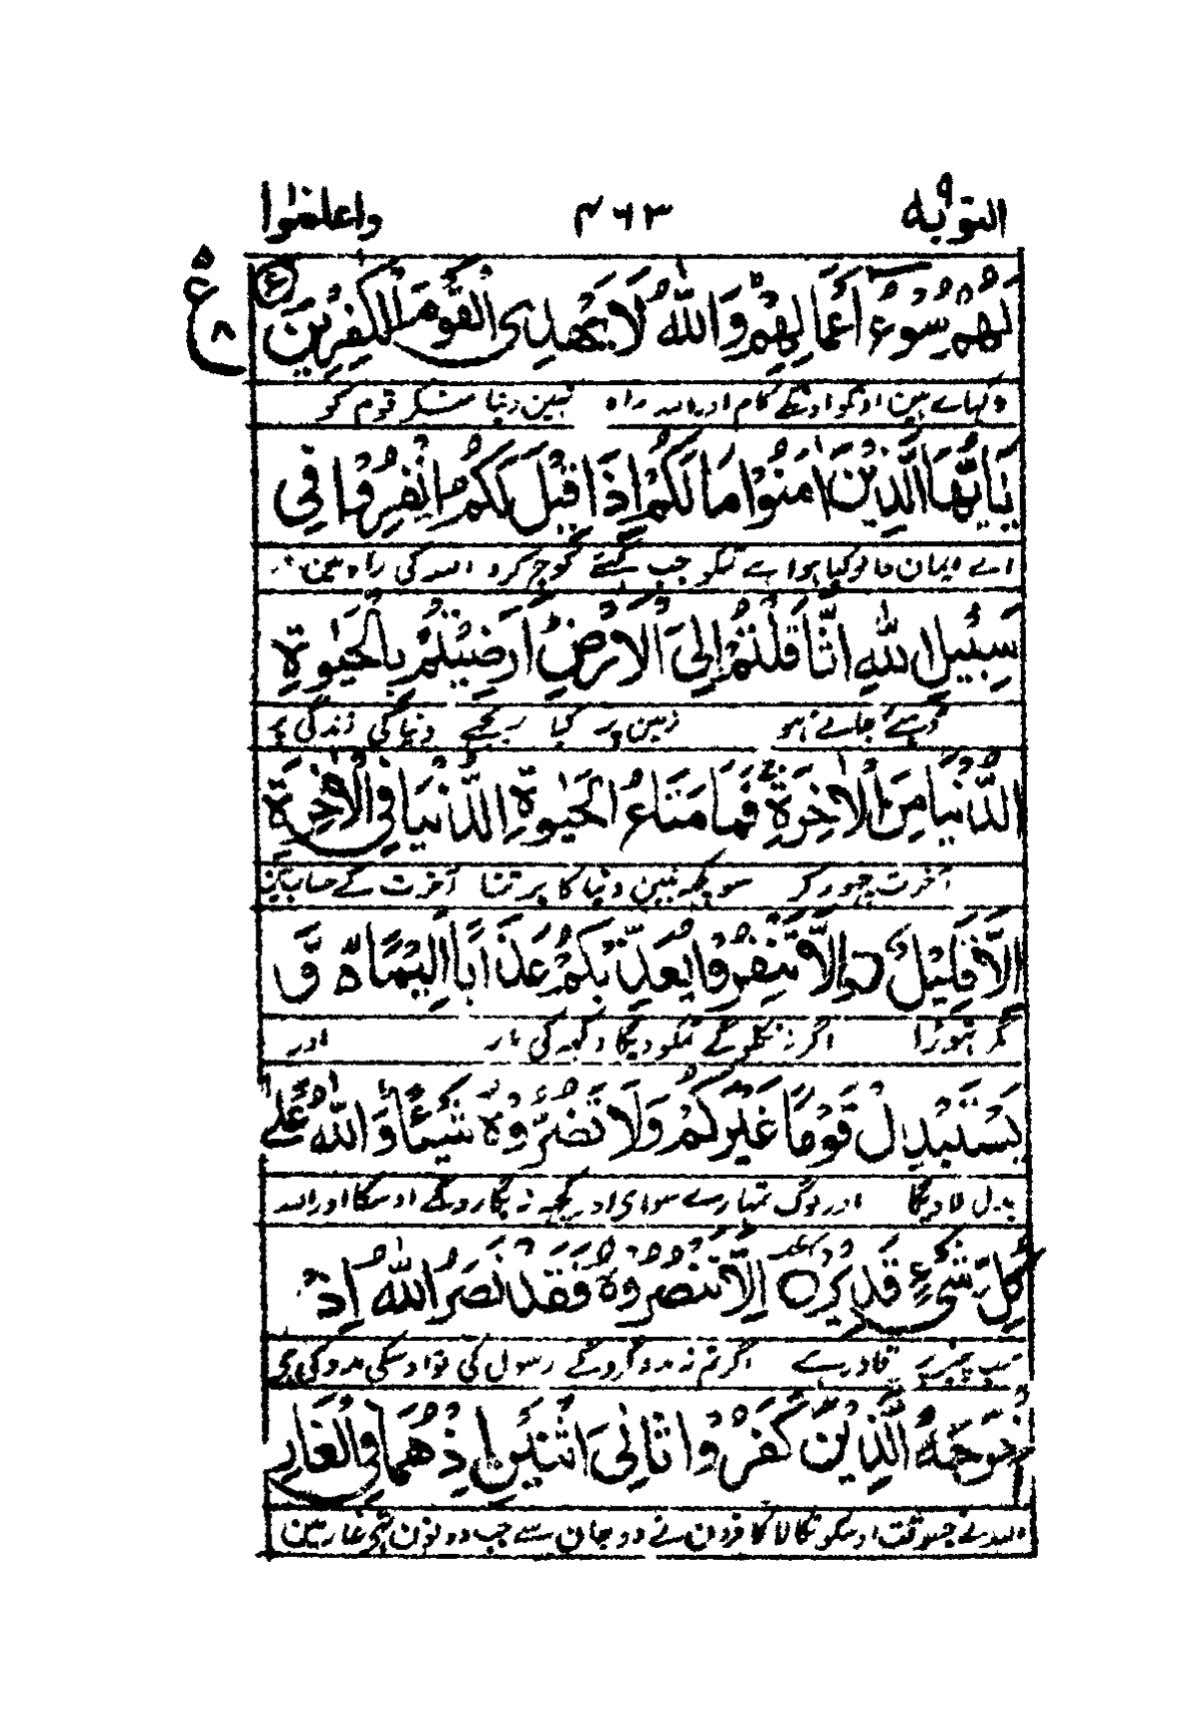 التوبه ٩ ۴۶۳ واعلموا
لَهُمْ سُوْٓءُ اَعْمَالِهِمْ وَاللّٰهُ لَا يَهْدِى الْقَوْمَ الْكٰفِرِيْنَ ع ٥ ٨
اونکو اونکے کام اور اللہ راہ نہین دیتا منکر قوم کو
يٰاَيُّهَا الَّذِيْنَ اٰمَنُوْا مَا لَكُمْ اِذَا قِيْلَ لَكُمُ انْفِرُوْا فِيْ
اے ایمان والو کیا ہوا ہے تمکو جب کہئے کوچ کرو اللہ کی راہ مین
سَبِيْلِ اللّٰهِ اثَّاقَلْتُمْ اِلَى الْاَرْضِ اَرَضِيْتُمْ بِالْحَيٰوةِ
جاتے ہو زمین پر کیا ریجھے دنیا کی زندگی پر
الدُّنْيَا مِنَ الْاٰخِرَةِ فَمَا مَتَاعُ الْحَيٰوةِ الدُّنْيَا فِى الْاٰخِرَةِ
آخرت چھوڑ کر سو کچھ نہین دنیا کا برتنا آخرت کے حساب مین
اِلَّا قَلِيْلٌ اِلَّا تَنْفِرُوْا يُعَذِّبْكُمْ عَذَابًا اَلِيْمًا وَّ
مگر تھوڑا اگر نہ نکلو گے تمکو دیگا دکھہ کی مار اور
يَسْتَبْدِلْ قَوْمًا غَيْرَكُمْ وَلَا تَضُرُّوْهُ شَيْئًا وَاللّٰهُ عَلٰى
بدل لاویگا اور لوگ تمہارے سوای اور کچھہ نہ بگاڑوگے اوسکا اور اللہ
كُلِّ شَىْءٍ قَدِيْرٌ اِلَّا تَنْصُرُوْهُ فَقَدْ نَصَرَهُ اللّٰهُ اِذْ
سب چیز پر قادر ہے اگر تم نہ مدد کروگے رسول کی تو اوسکی مدد کی ہی
اَخْرَجَهُ الَّذِيْنَ كَفَرُوْا ثَانِىَ اثْنَيْنِ اِذْ هُمَا فِى الْغَارِ
اللہ نے جسوقت اوسکو نکالا کافرون نے دو جان سے جب دونون تھے غار مین